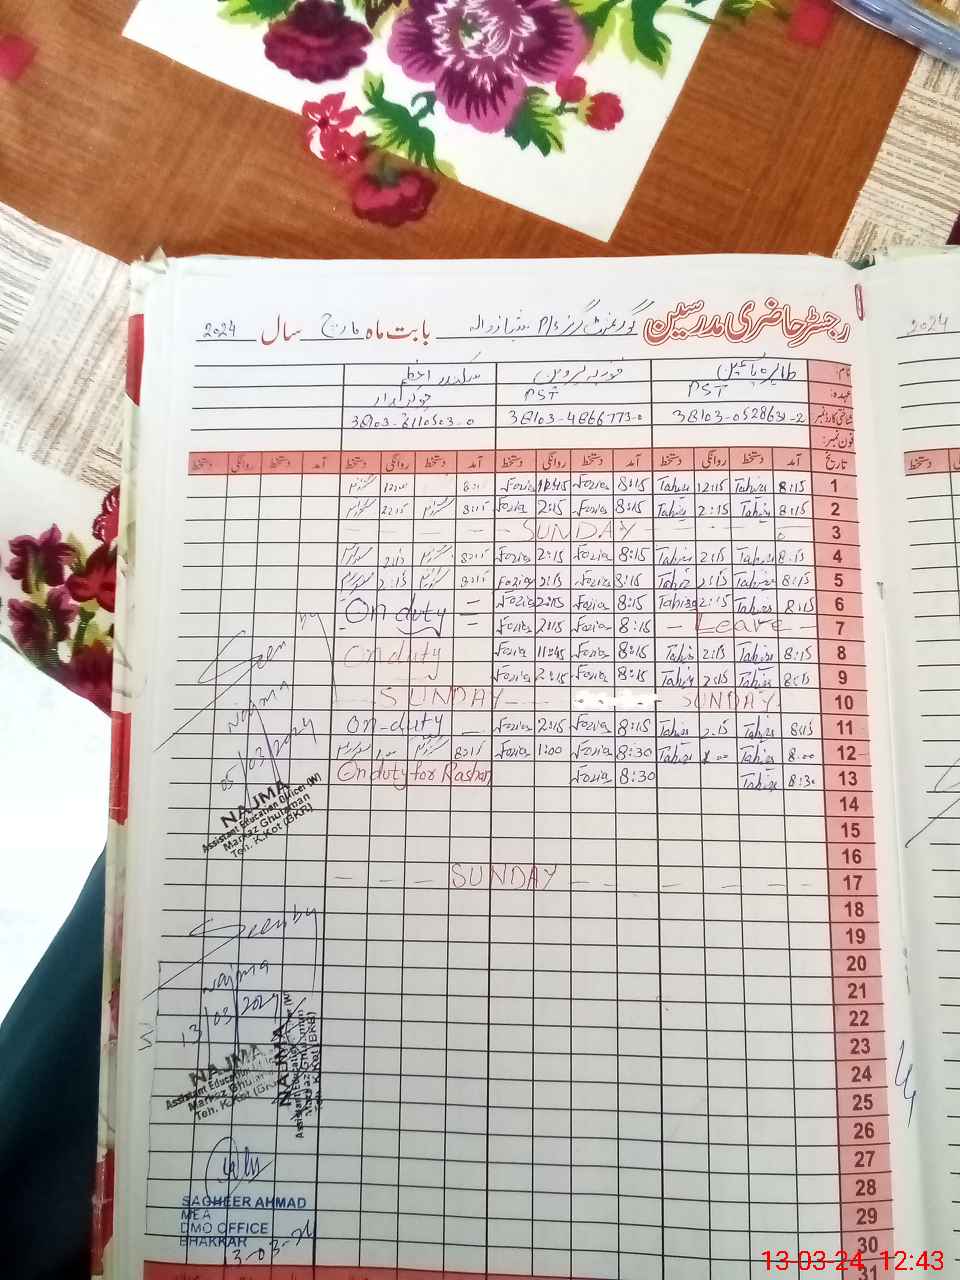 رجسٹر حاضری مدرسین گورنمنٹ گرلز بابت ماہ مارچ سال 2024
2024
نام:
عہدہ: PST PST چوکیدار
شناختی کارڈ نمبر
فون نمبر:
تاریخ آمد دستخط روانگی دستخط آمد دستخط روانگی دستخط آمد دستخط روانگی دستخط آمد دستخط روانگی دستخط
1 8:15 Tahira 12:15 Tahira 8:15 Fozia 12:15 Fozia 8:15
2 8:15 Tahira 2:15 Tahira 8:15 Fozia 2:15 Fozia 8:15 2:15
3 SUNDAY
4 8:15 Tahira 2:15 Tahira 8:15 Fozia 2:15 Fozia 8:15 2:15
5 8:15 Tahira 2:15 Tahira 8:15 Fozia 2:15 Fozia 8:15 2:15
6 8:15 Tahira 2:15 Tahira 8:15 Fozia 2:15 Fozia On duty
7 - Leave - 8:15 Fozia 2:15 Fozia
8 8:15 Tahira 2:15 Tahira 8:15 Fozia 11:45 Fozia On duty
9 8:15 Tahira 2:15 Tahira 8:15 Fozia 2:15 Fozia
10 SUNDAY SUNDAY
11 8:15 Tahira 2:15 Tahira 8:15 Fozia 2:15 Fozia On-duty
12 8:00 Tahira Tahira 8:30 Fozia 1:00 Fozia 8:15
13 8:30 Tahira 8:30 Fozia On duty for Rashan
14
15
16
17 SUNDAY
18
19
20
21
22
23
24
25
26
27
28
29
30
31
Seen by
Najma
05/03/2024
NAJMA
Assistant Education Officer (W)
Markaz Ghulaman
Teh. K.Kot (BKR)
Seen by
Najma
13/03/2024
NAJMA
Assistant Education
Markaz Ghulaman
Teh. K.Kot (BKR)
NAJMA
Assistant Education Officer (W)
Markaz Ghulaman
Teh. K.Kot (BKR)
SAGHEER AHMAD
MEA
DMO OFFICE
BHAKKAR
13-03-24
13-03-24, 12:43